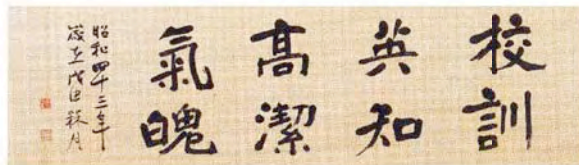 校訓
英知
高潔
氣魄
昭和四十三年
歳在戊申秋月